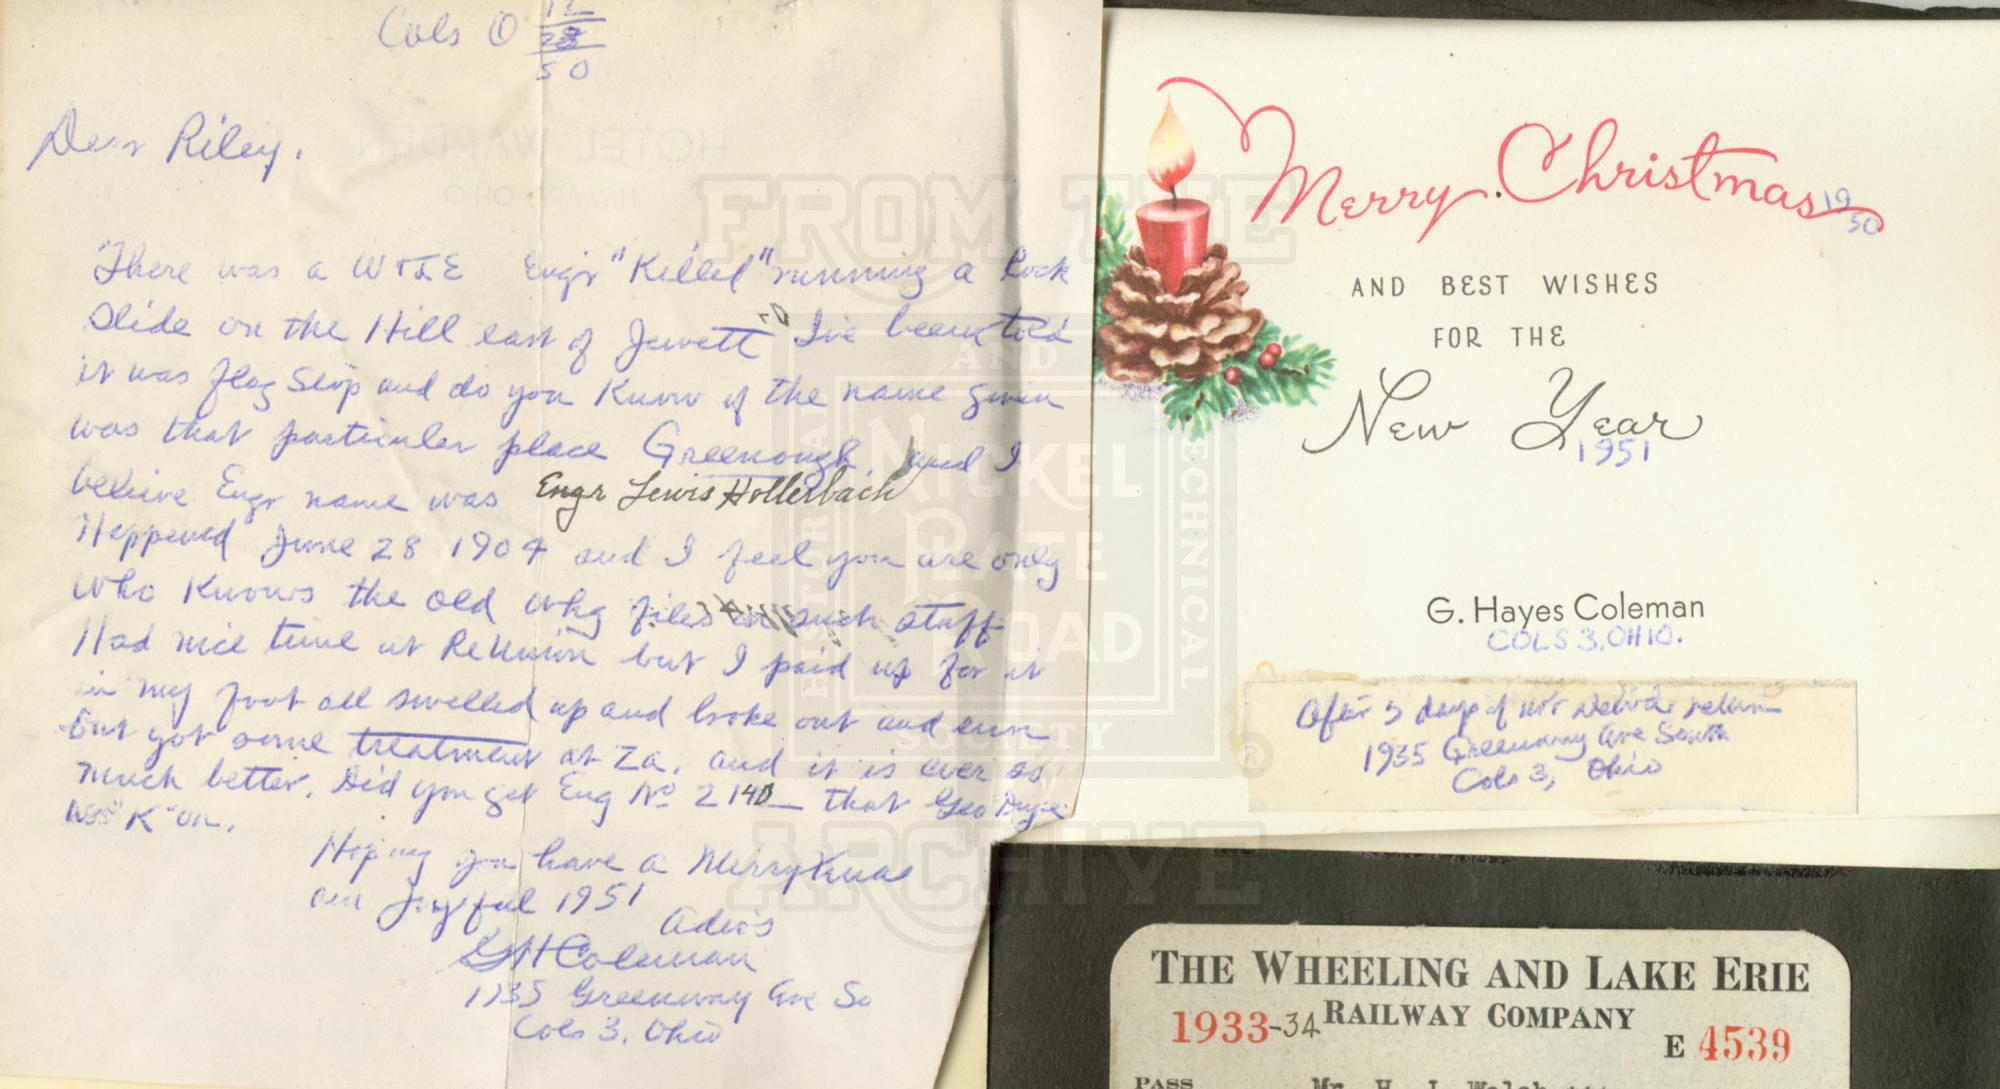 Cols O 12
28
50
Dear Riley.
HOTEL WARDEN
NEWARK, OHIO
There was a W+LE Engr "Killed" running a Rock
Slide on the Hill east of Jewett -O I've been told
it was flag Stop and do you Know of the name given
was that particular place Greenough, and I
believe Engr name was Engr Lewis Hollerbach
Happened June 28 1904 and I feel you are only
who Knows the old Whg files such stuff
Had nice time at ReUnion but I paid up for it
in my foot all swelled up and broke out and run
but got some treatment at Za. and it is ever so
much better. Did you get Eng No 2140 that Geo
was "K" on.
Hoping you have a Merry Xmas
an Joyful 1951
Adios
GHColeman
1935 Greenway Ave So
Cols 3. Ohio
Merry Christmas 19
50
AND BEST WISHES
FOR THE
New Year
1951
G. Hayes Coleman
COLS 3, OHIO.
After 5 days if not Deliver return
1935 Greenway Ave South
Cols 3, Ohio
THE WHEELING AND LAKE ERIE
1933-34 RAILWAY COMPANY
E 4539
PASS Mr. H. J. Walsh
FROM THE
AND
HISTORICAL
NICKEL
PLATE
ROAD
TECHNICAL
SOCIETY
ARCHIVE
®